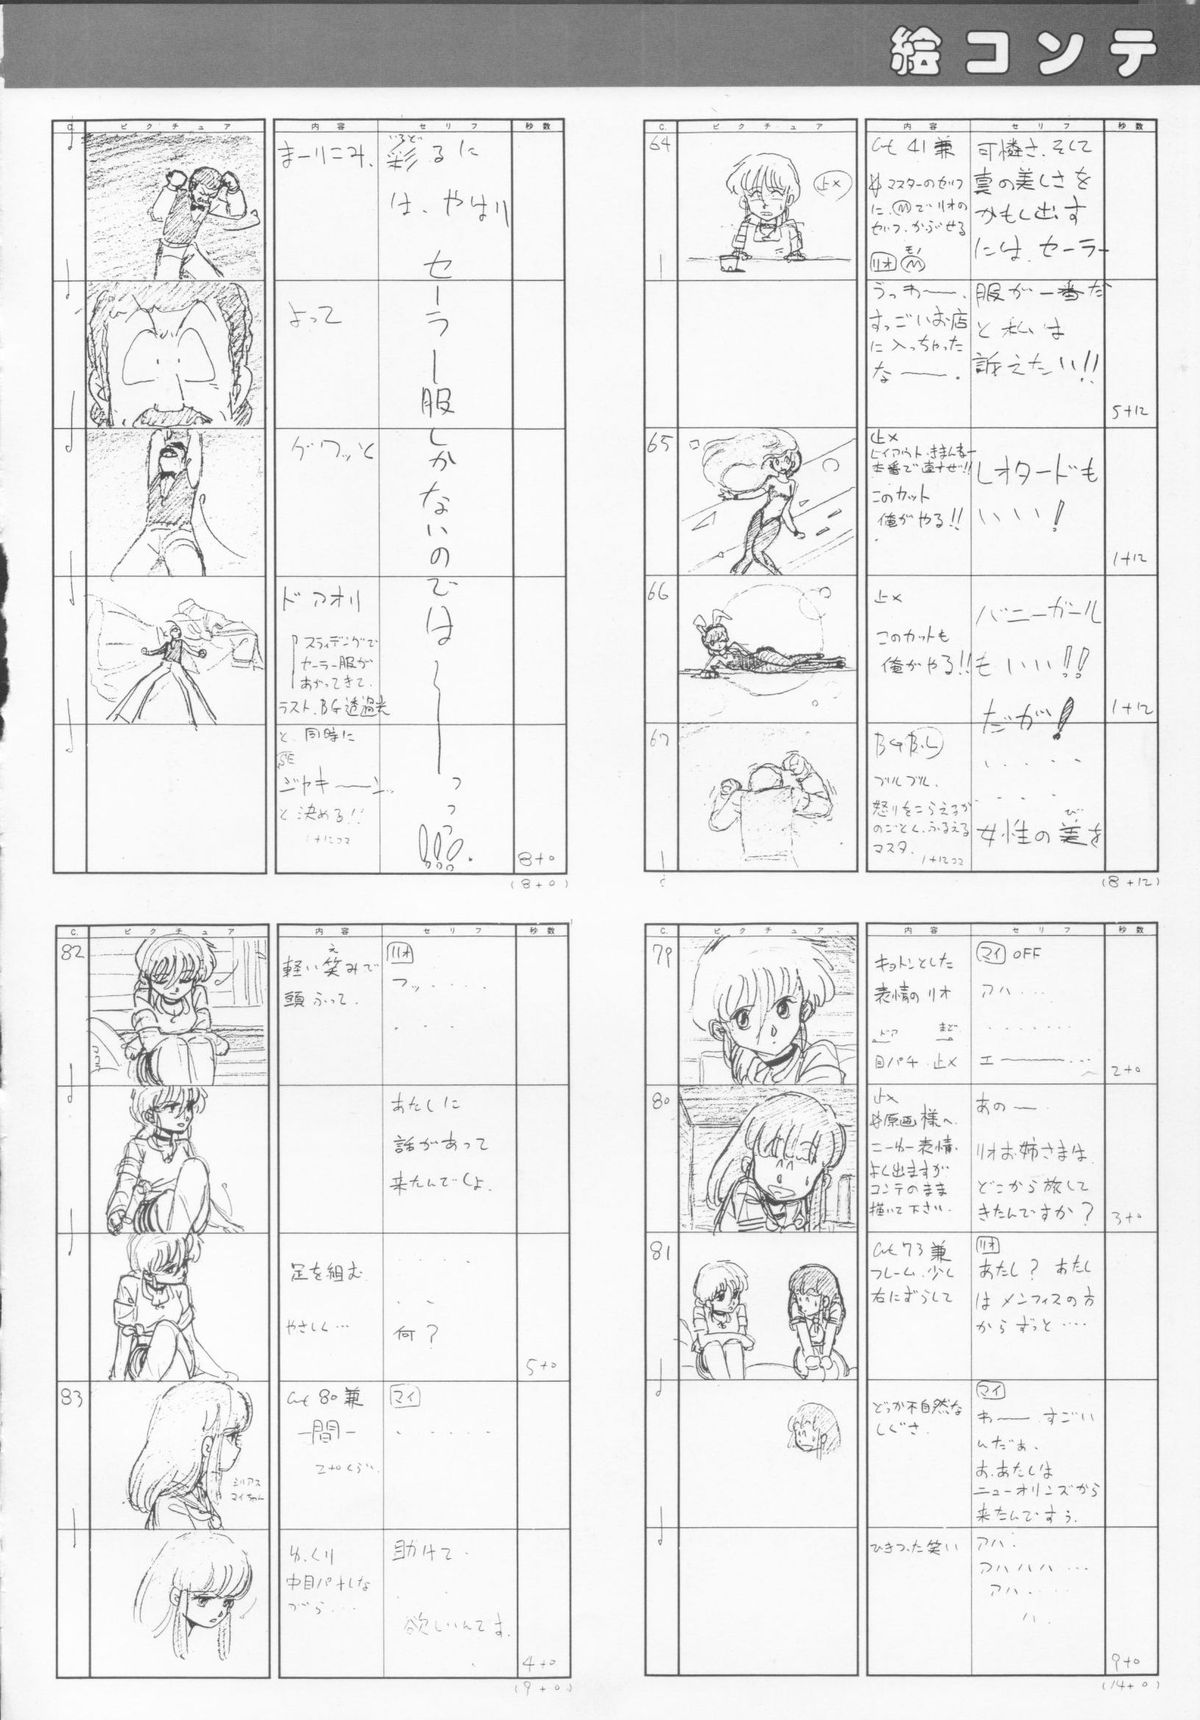 絵コンテ
C. ピクチュア 内容 セリフ 秒数
64
止メ
Cut 41 兼
マスターのセリフ
に、Ⓜでリオの
セリフ、かぶせる
リオ Ⓜ
モノ
うっわー、
すっごいお店
に入っちゃった
なー。
可憐さ、そして
真の美しさを
かもし出す
には、セーラー
服が一番だ
と私は
訴えたい!!
5+12
65
止メ
このカット
俺がやる!!
レオタードも
いい!
1+12
66
止メ
このカットも
俺がやる!!
バニーガール
もいい!!
だが!
1+12
67
BG B.L
ブルブル。
怒りをこらえるが
のごとく、ふるえる
マスタ。
1+12コマ
・・・・・
・・・・
女性の美を
び
(8+12)
C. ピクチュア 内容 セリフ 秒数
まーりこみ、
よって
グワッと
ド アオリ
スライディングで
セーラー服が
あがってきて、
ラスト、BG透過光
と、同時に
SE
ジャキーーン
と決める!!
1+12コマ
いろど
彩るに
は、やはり
セーラー服しかないのではーーっっっ!!!
8+0
(8+0)
C. ピクチュア 内容 セリフ 秒数
79
キョトンとした
表情のリオ
ドア まど
目パチ・止メ
マイ OFF
アハ・・・
・・・・・・・
エーーー・・・
2+0
80
止メ
原画様へ
ニーカー表情、
よく出ますが
コンテのまま
描いて下さい。
あのー
リオお姉さまは、
どこから旅して
きたんですか?
3+0
81
Cut 73 兼
フレーム、少し
右にずらして
リオ
あたし? あたし
はメンフィスの方
からずっと・・・・
どっか不自然な
しぐさ。
マイ
わーー、すごい
んだぁ、
お、あたしは
ニューオリンズから
来たんですぅ。
ひきつった笑い
アハ・
アハハハ・・・
アハ・・・・
ハ・
9+0
(14+0)
C. ピクチュア 内容 セリフ 秒数
82
軽い笑みで
え
頭ふって、
リオ
フッ・・・・・
・・・・
あたしに
話があって
来たんでしょ。
足を組む
やさしく・・・
・・・・
・・
何?
5+0
83
Cut 80 兼
―間―
2+0くらい
マイ
・・・・・・
ゆっくり
中目パチしな
がら・・・
助けて・
・・
欲しいんです。
・
4+0
(9+0)